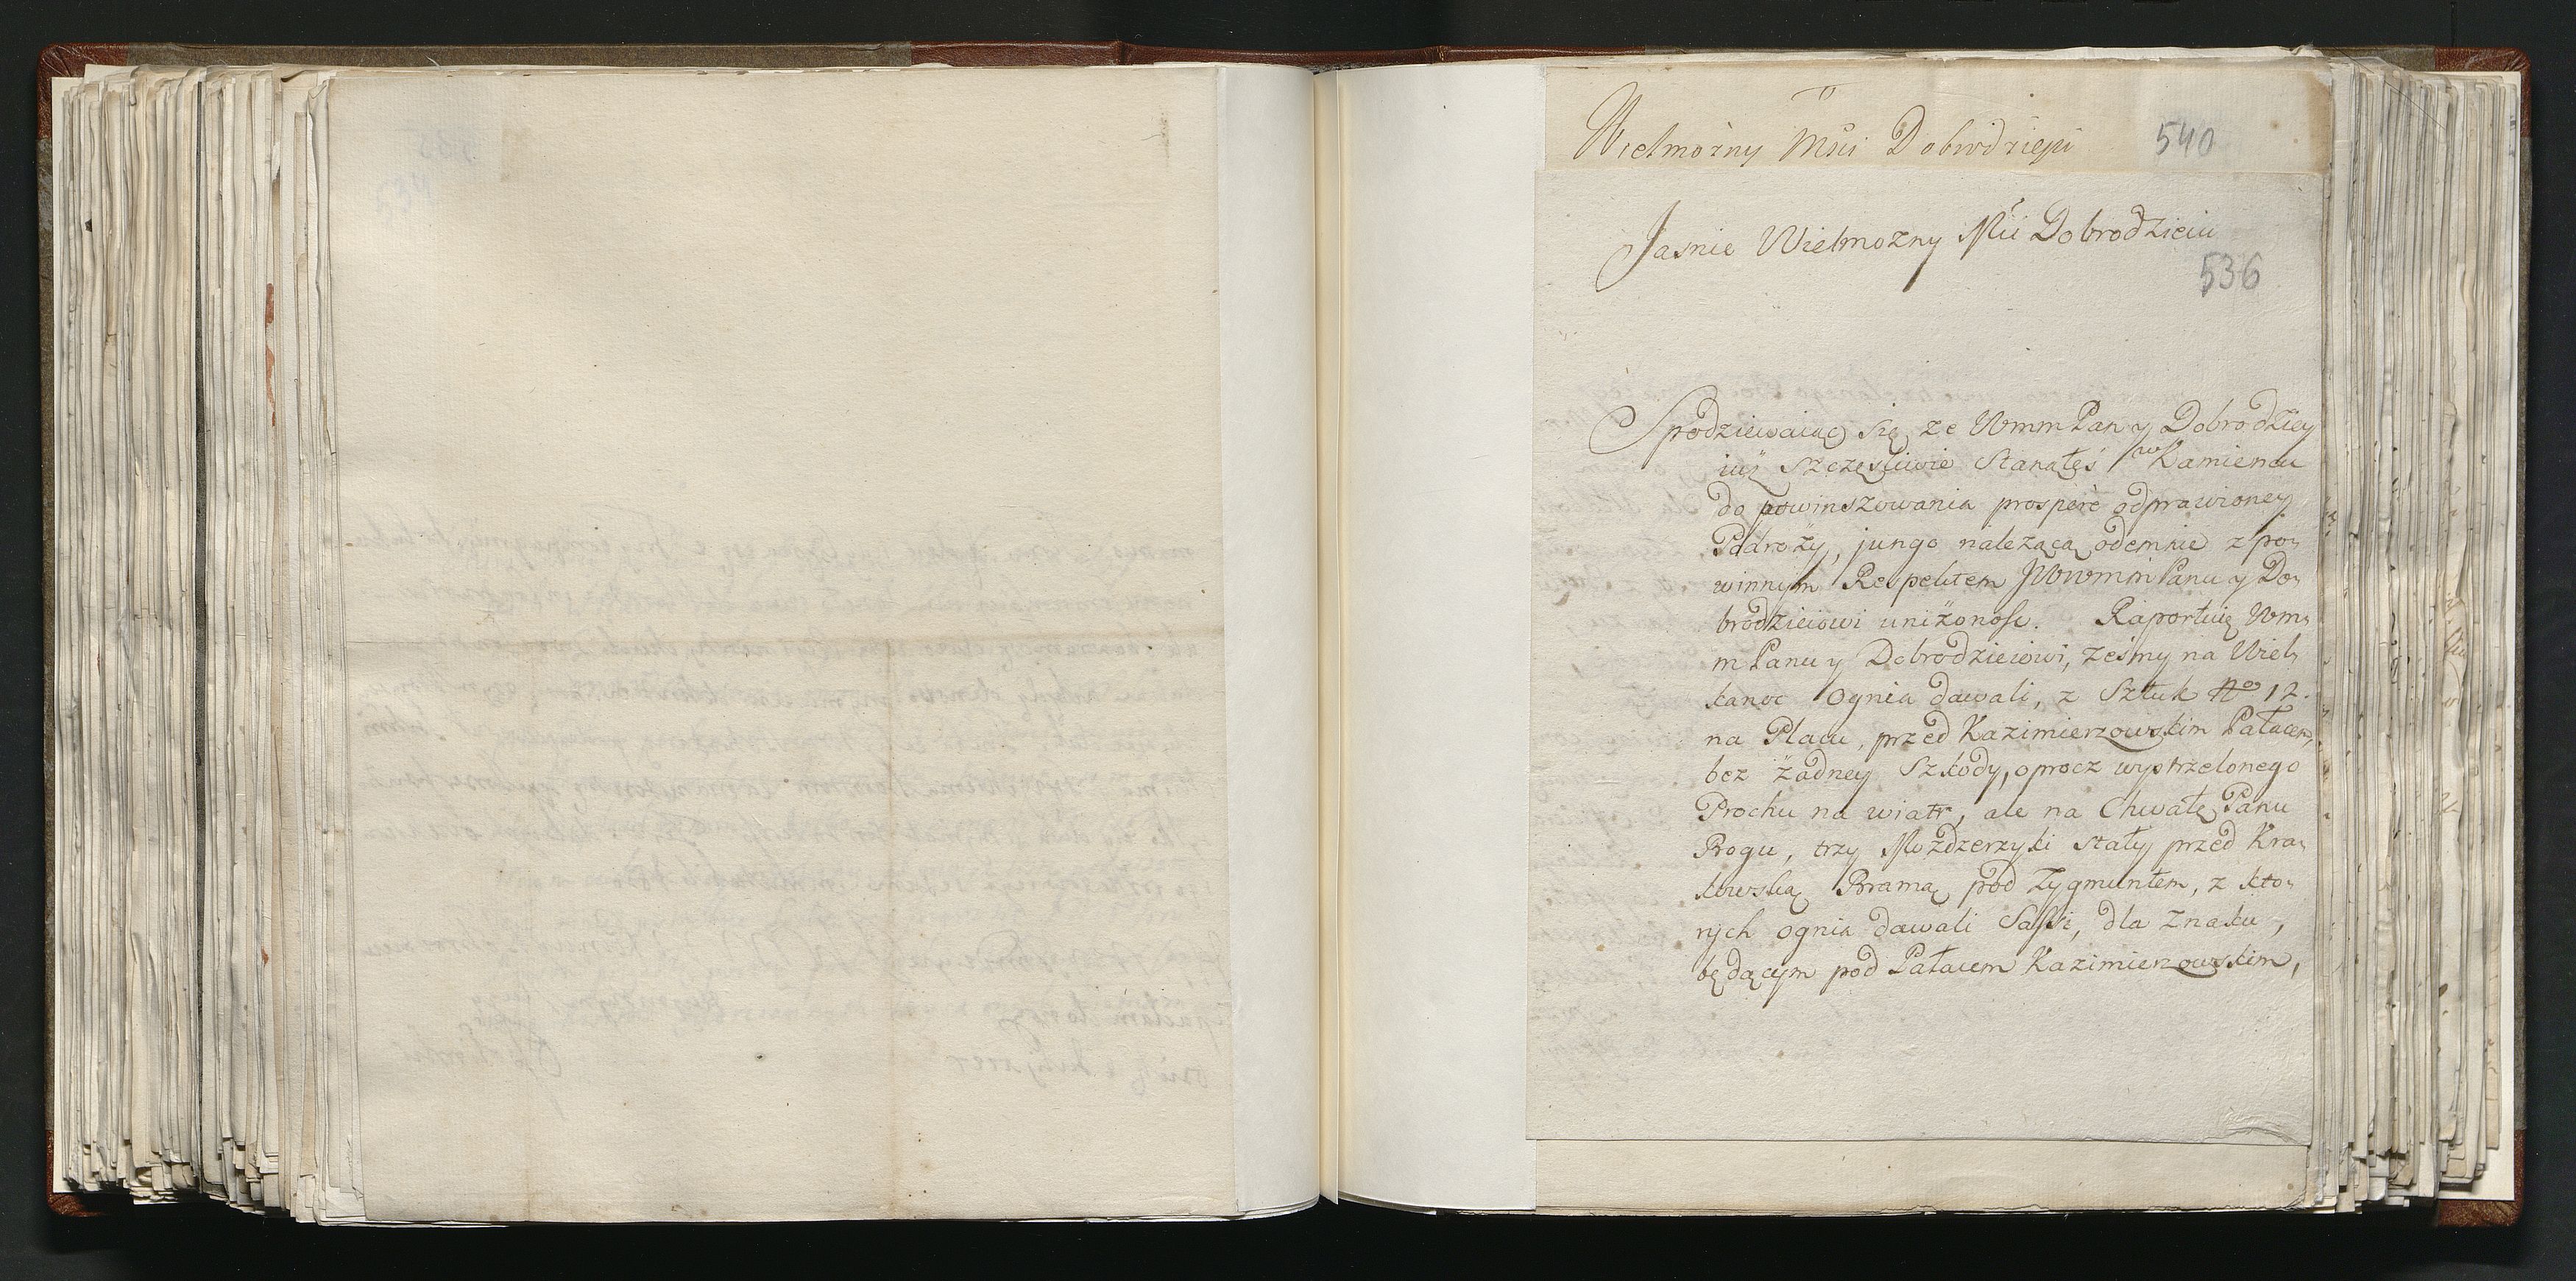 Wielmożny Msci Dobrodzieju
540
Jasnie Wielmozny Msci Dobrodzieiu
536
Spodziewaiąc się ze Wmm Pan y Dobrodziey
iuż szczęsliwie Stanąłeś w Kamiencu
do powinszowania prosperè odprawioney
Podroży, jungo należącą odemnie z po,
winnym Respektem JWwmm Panu y Do,
brodzieiowi uniżonosc. Raportuię Wm,
m Panu y Dobrodzieiowi, zesmy na Wiel,
kanoc Ognia dawali, z Sztuk No 12.
na Placu, przed Kazimierzowskim Pałacem,
bez żadney Szkody, oprocz wystrzelonego
Prochu na wiatr, ale na Chwałę Panu
Bogu, trzy Mozdzerzyki stały przed Kra,
kowską Bramą pod Zygmuntem, z kto,
rych ognia dawali Sassi, dla znaku,
będącym pod Pałacem Kazimierzowskim,